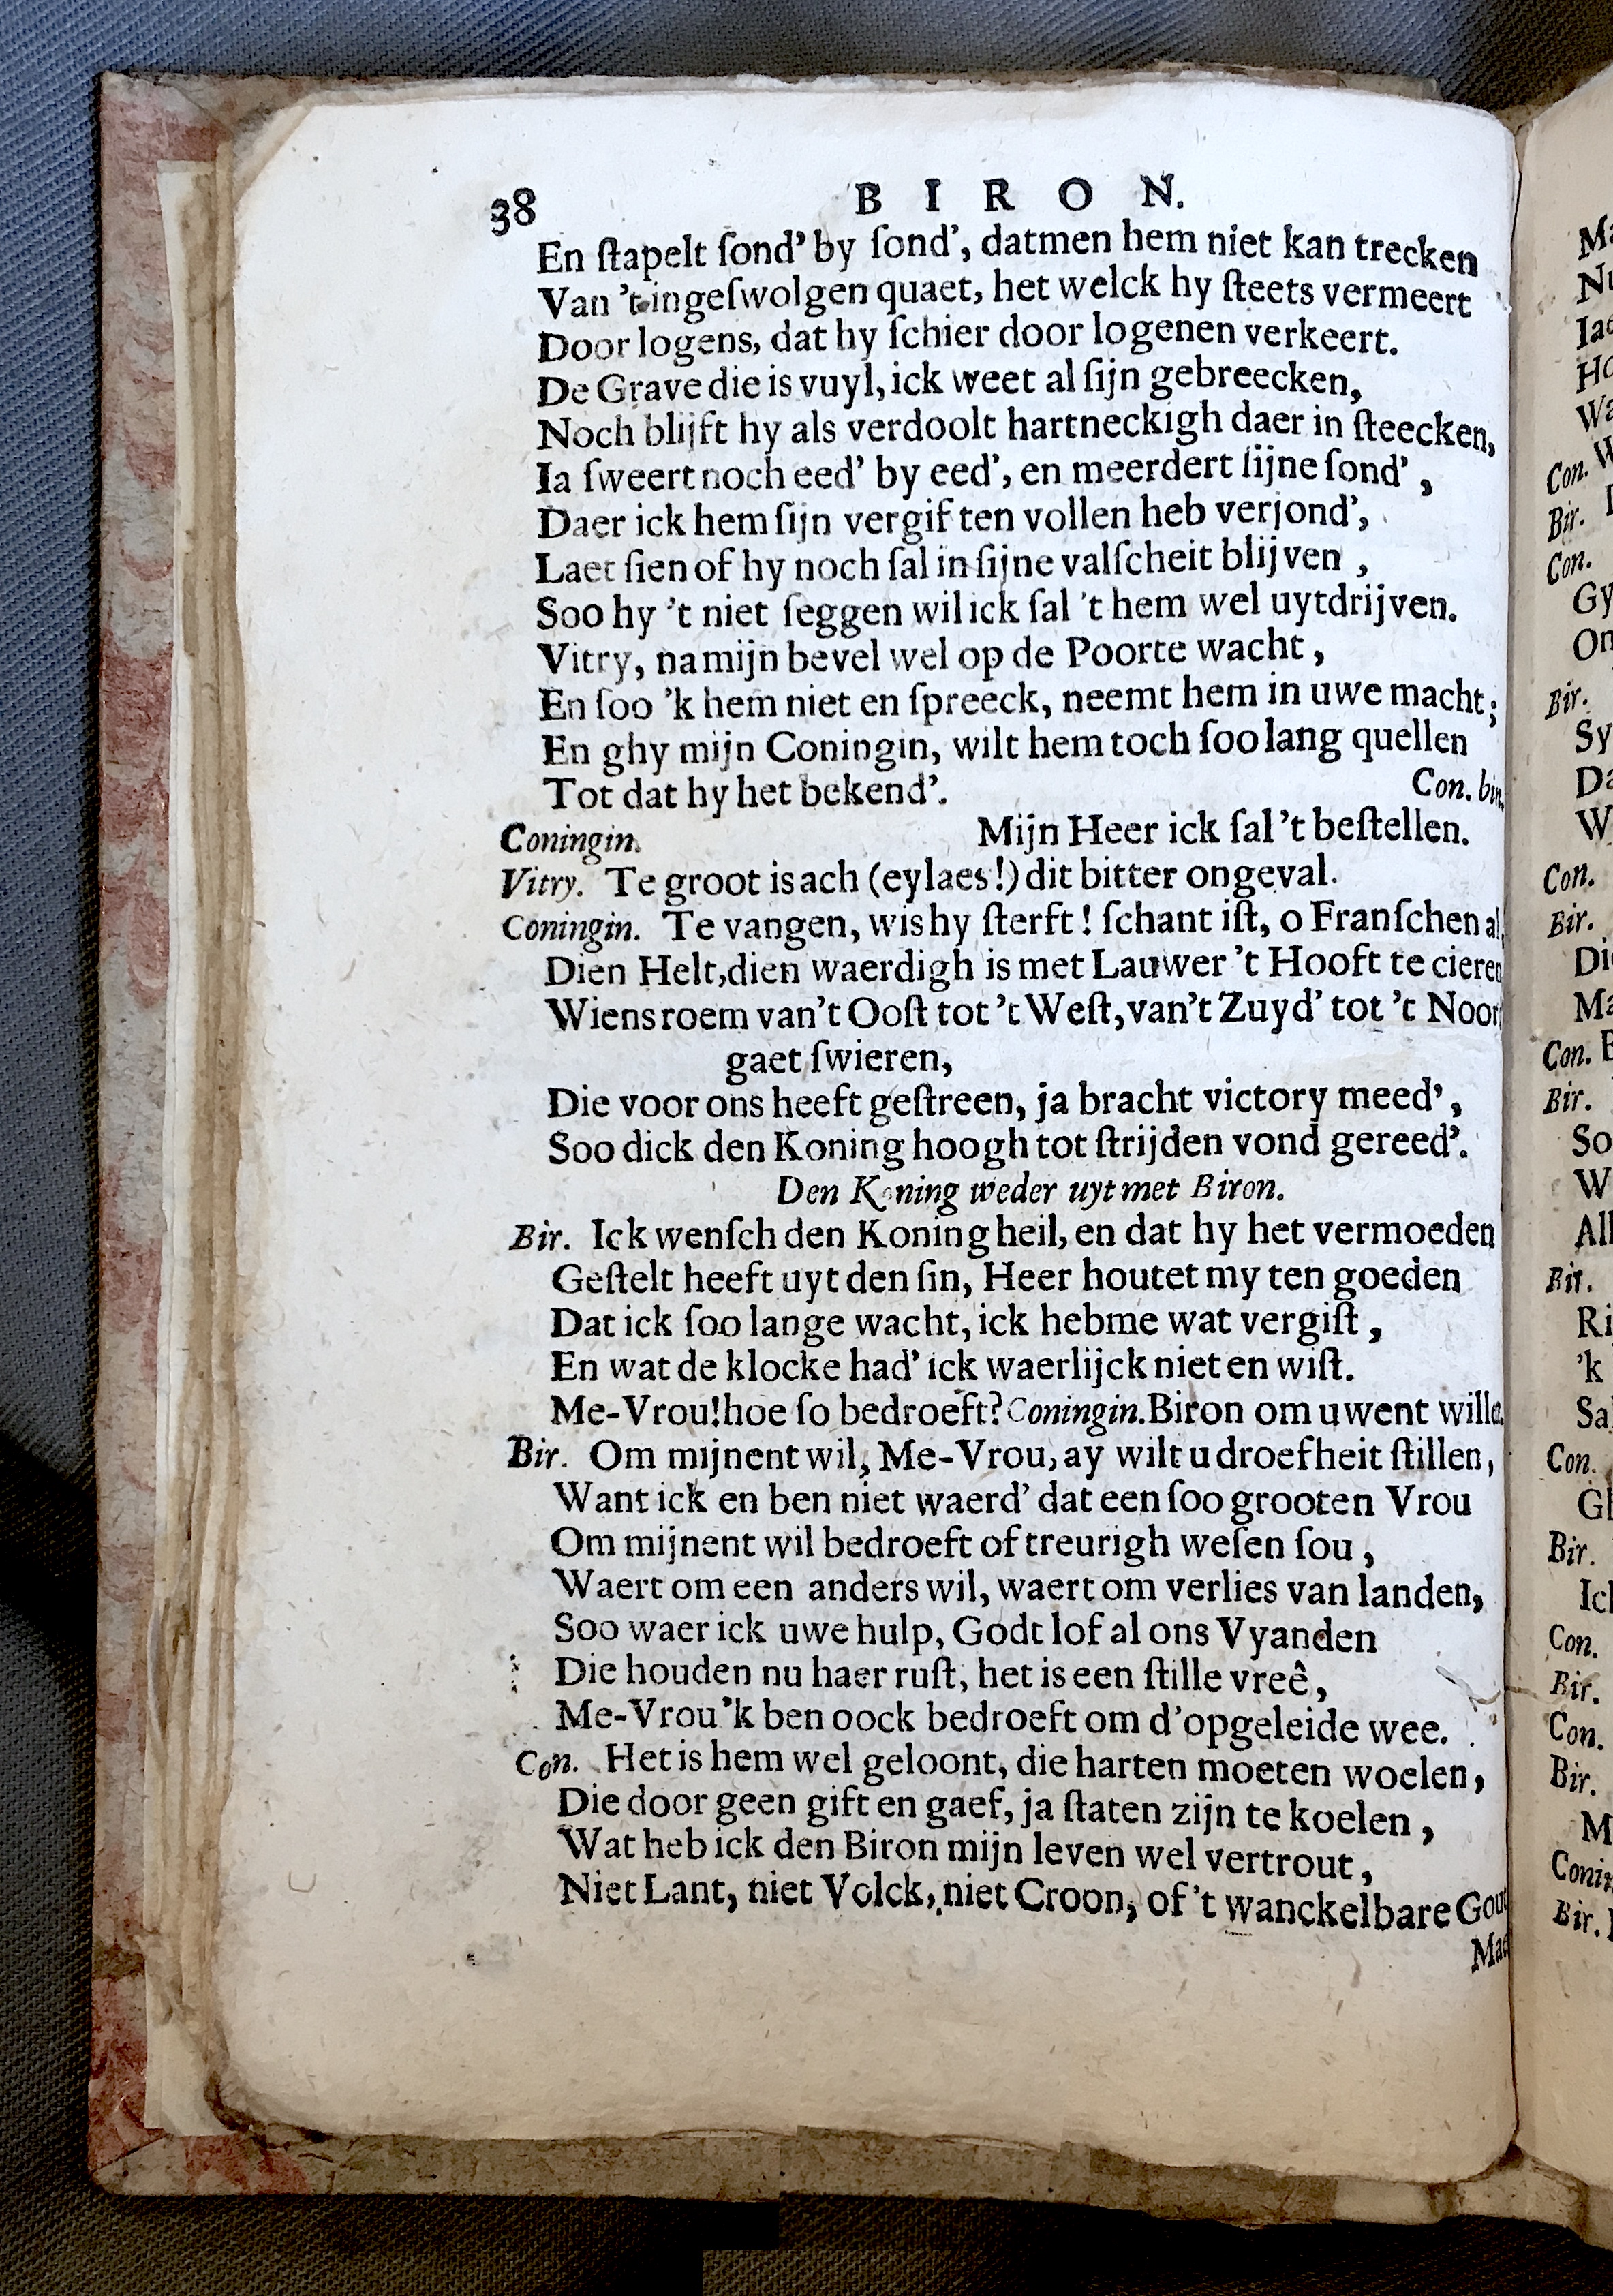 38 BIRON.
En ſtapelt ſond' by ſond', datmen hem niet kan trecken
Van 't ingeſwolgen quaet, het welck hy ſteets vermeert
Door logens, dat hy ſchier door logenen verkeert.
De Grave die is vuyl, ick weet al ſijn gebreecken,
Noch blijft hy als verdoolt hartneckigh daer in ſteecken,
Ia ſweert noch eed' by eed', en meerdert ſijne ſond',
Daer ick hem ſijn vergif ten vollen heb verjond',
Laet ſien of hy noch ſal in ſijne valſcheit blijven,
Soo hy 't niet ſeggen wil ick ſal 't hem wel uytdrijven.
Vitry, na mijn bevel wel op de Poorte wacht,
En ſoo 'k hem niet en ſpreeck, neemt hem in uwe macht;
En ghy mijn Coningin, wilt hem toch ſoo lang quellen
Tot dat hy het bekend'. Con. bin.
Coningin. Mijn Heer ick ſal 't beſtellen.
Vitry. Te groot is ach (eylaes!) dit bitter ongeval.
Coningin. Te vangen, wis hy ſterft! ſchant iſt, o Franſchen al,
Dien Helt, dien waerdigh is met Lauwer 't Hooft te cieren
Wiens roem van't Ooſt tot 't Weſt, van't Zuyd' tot 't Noor
gaet ſwieren,
Die voor ons heeft geſtreen, ja bracht victory meed',
Soo dick den Koning hoogh tot ſtrijden vond gereed'.
Den Koning weder uyt met Biron.
Bir. Ick wenſch den Koning heil, en dat hy het vermoeden
Geſtelt heeft uyt den ſin, Heer houtet my ten goeden
Dat ick ſoo lange wacht, ick hebme wat vergiſt,
En wat de klocke had' ick waerlijck niet en wiſt.
Me-Vrou! hoe ſo bedroeft? Coningin. Biron om uwent wille.
Bir. Om mijnent wil, Me-Vrou, ay wilt u droefheit ſtillen,
Want ick en ben niet waerd' dat een ſoo grooten Vrou
Om mijnent wil bedroeft of treurigh weſen ſou,
Waert om een anders wil, waert om verlies van landen,
Soo waer ick uwe hulp, Godt lof al ons Vyanden
Die houden nu haer ruſt, het is een ſtille vreê,
Me-Vrou 'k ben oock bedroeft om d'opgeleide wee.
Con. Het is hem wel geloont, die harten moeten woelen,
Die door geen gift en gaef, ja ſtaten zijn te koelen,
Wat heb ick den Biron mijn leven wel vertrout,
Niet Lant, niet Volck, niet Croon, of 't wanckelbare Gou
Mae
Nu
Con.
Bir.
Con.
Gy
Bir.
Sy
Da
W
Con.
Bir.
Di
Ma
Con.
Bir.
So
W
All
Bir.
Ri
'k
Sa
Con.
Gl
Bir.
Ick
Con.
Bir.
Con.
Bir.
M
Bir.